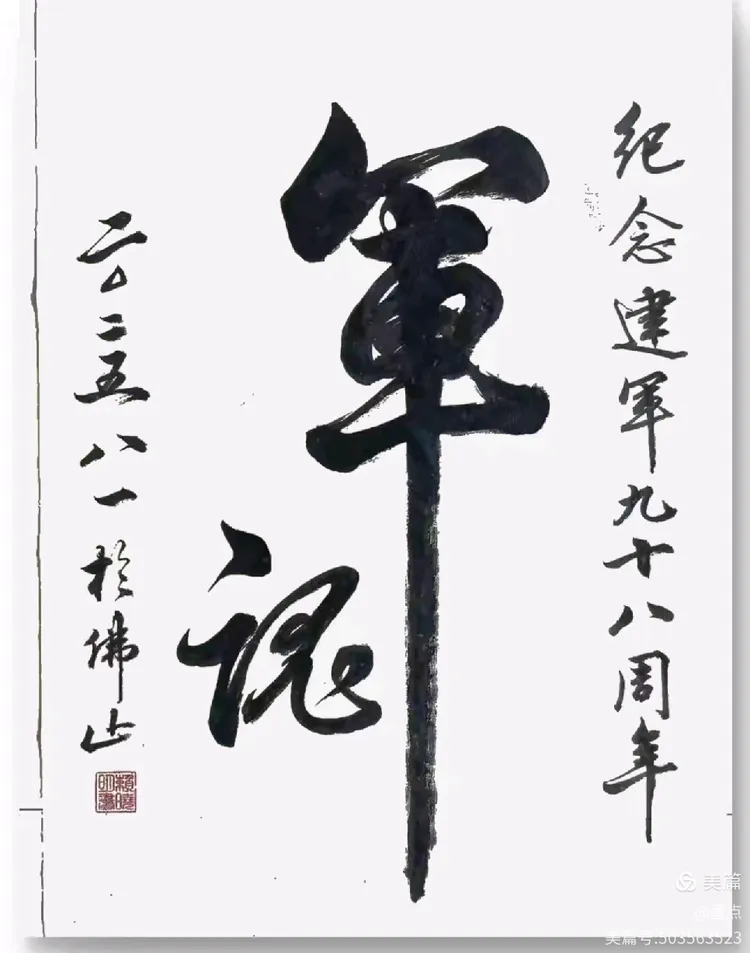 纪念建軍九十八周年
軍魂
二〇二五八一於佛山
美篇
美篇号:503563523